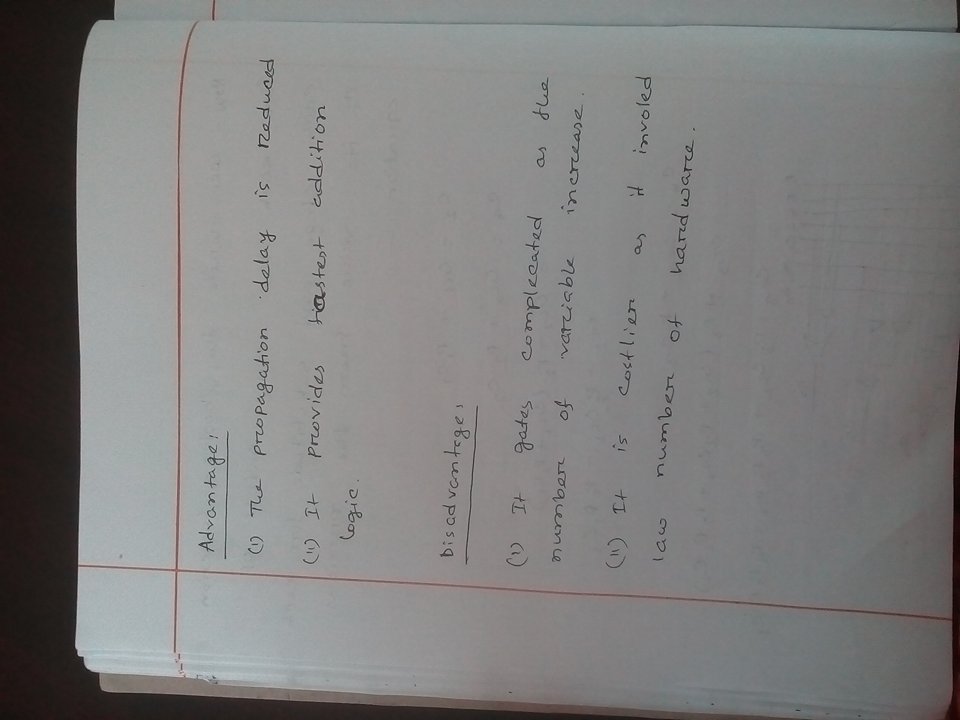 Advantage:
(i) The propagation delay is Reduced
(ii) It provides fastest addition
logic.
Disadvantage:
(i) It gates complecated as the
number of variable increase.
(ii) It is costlier as it involed
law number of hardware.